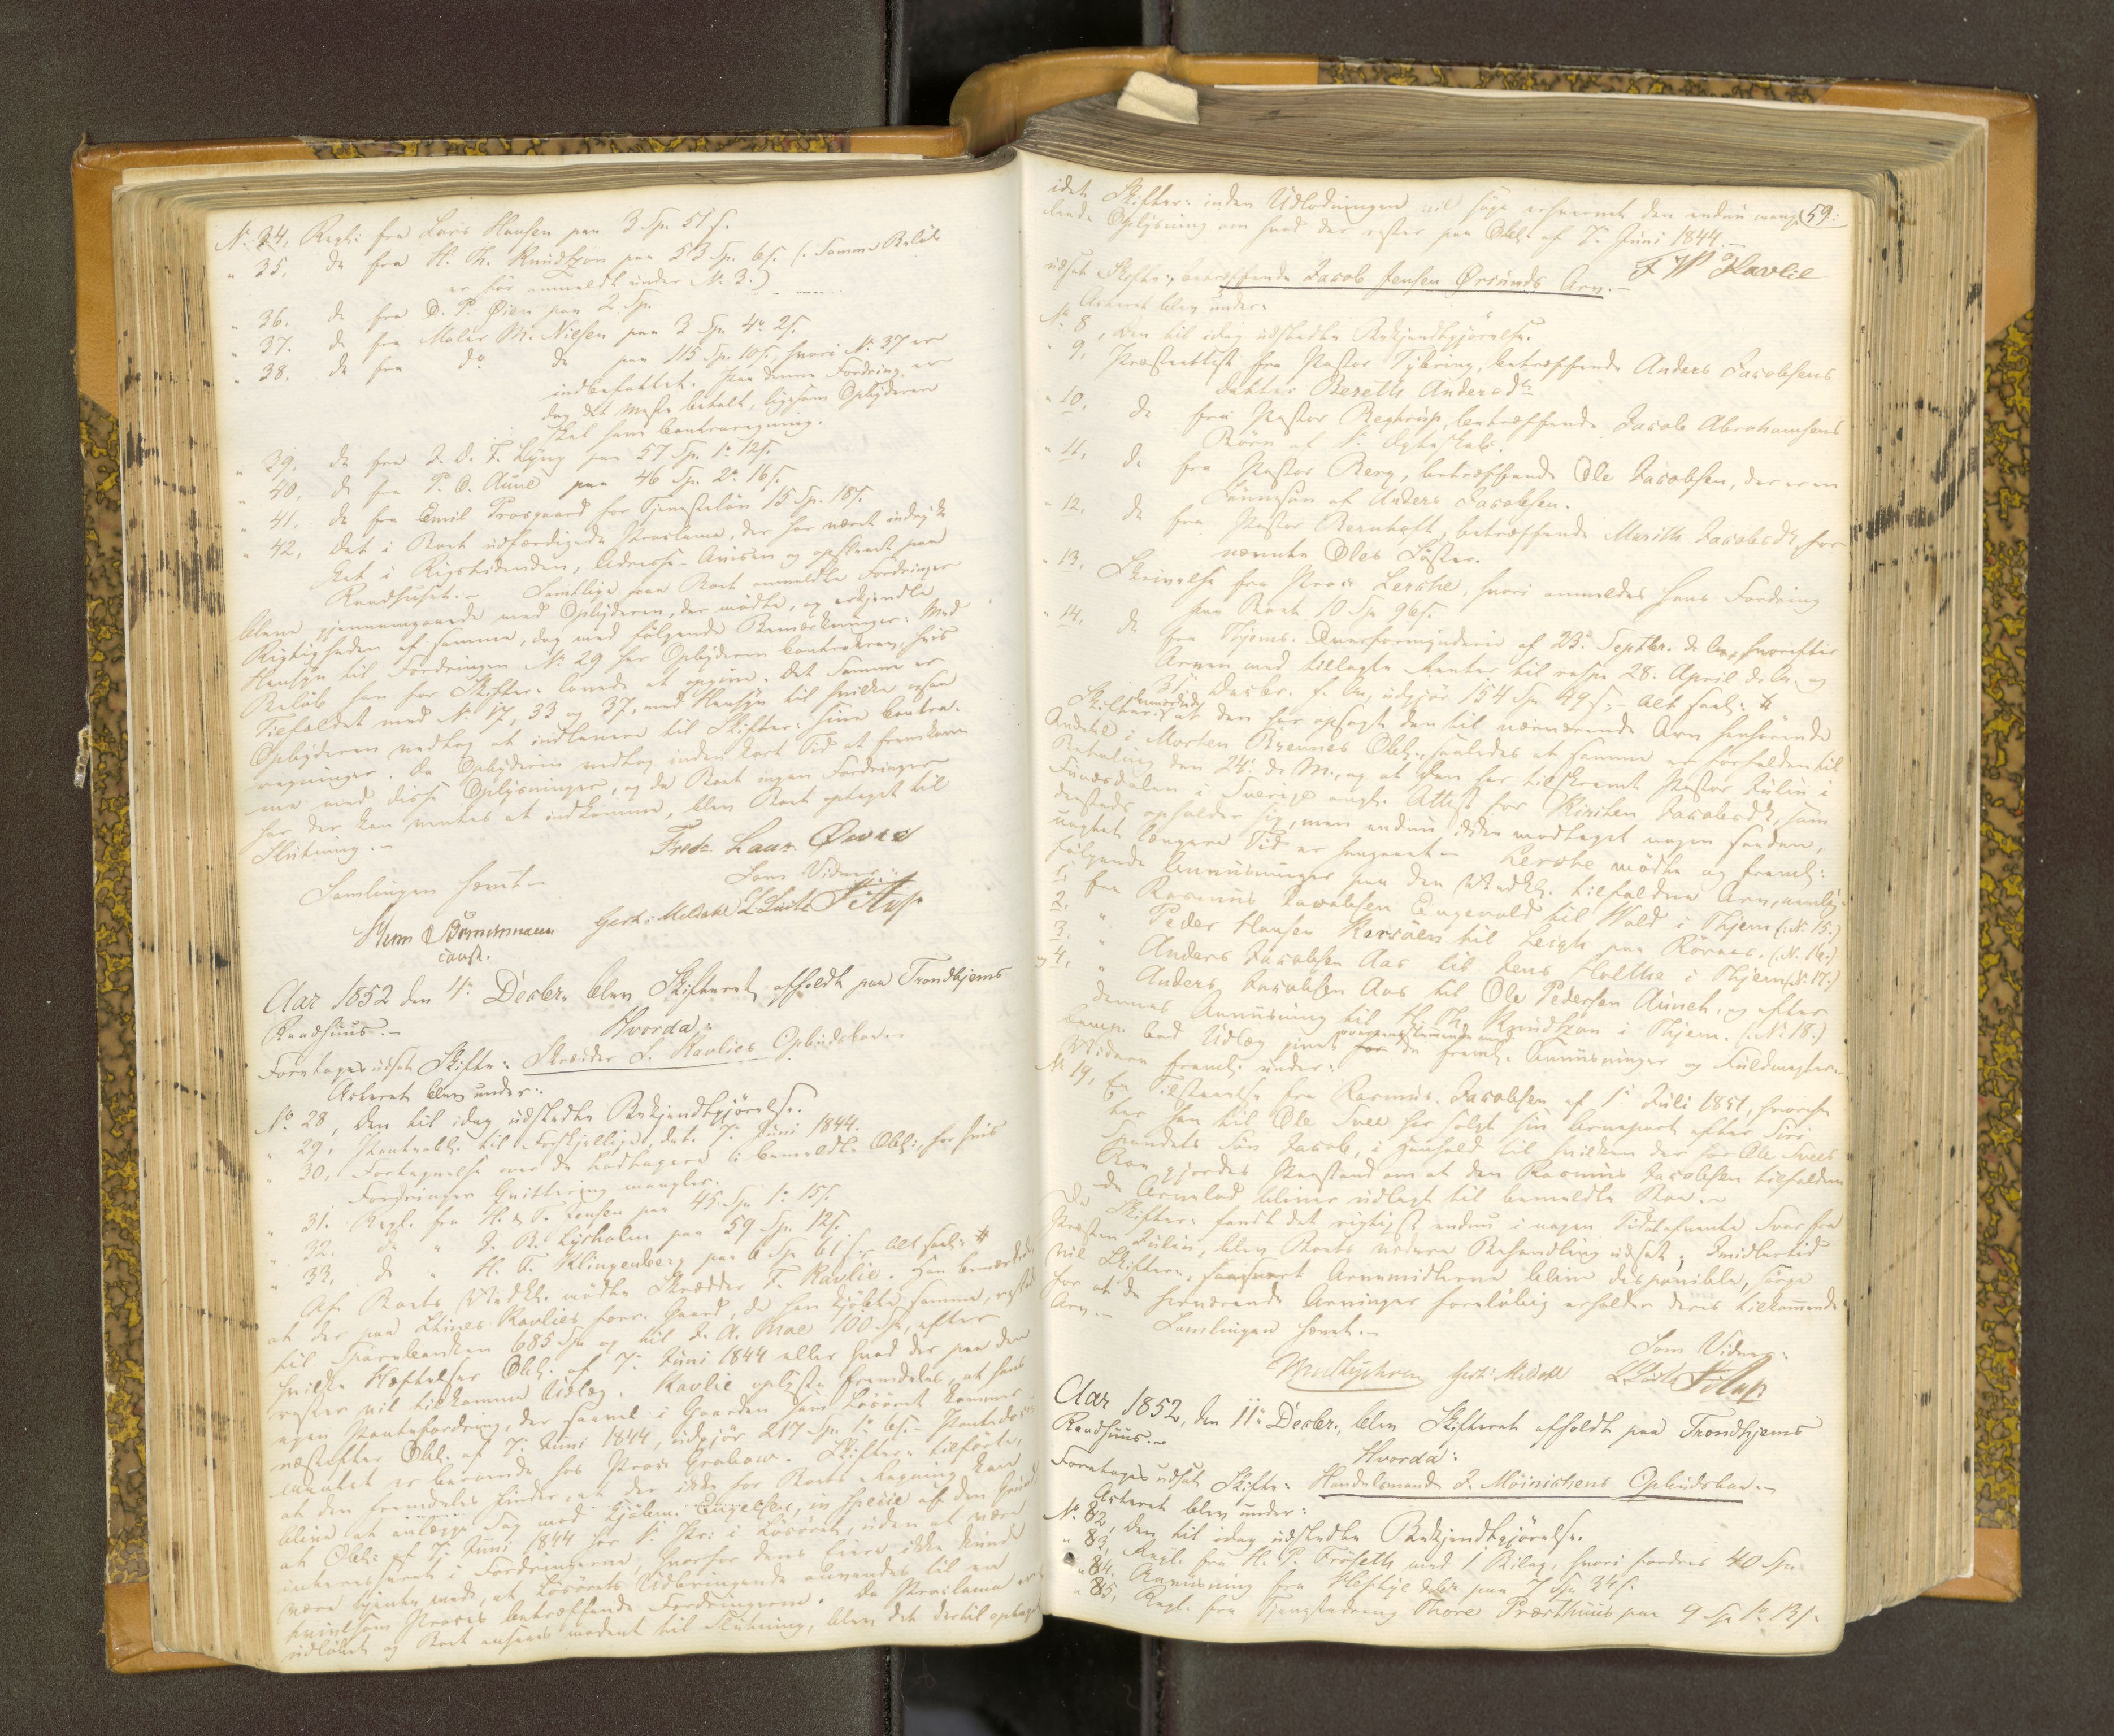 N: 34, Regn: fra Lars Hansen paa 3 Sp. 51 s.
" 35, do fra H. Th. Knudtzon paa 53 Sp. 6 s. (: Samme Beløb
er før anmeldt under N: 3.)
" 36. do fra O. P. Øien paa 2 Sp.
" 37. do fra Maler M. Nielsen paa 3 Sp. 4 2 s.
" 38. do fra do do paa 115 Sp. 10 s., hvori N: 37 er
indbefattet. Paa denne Fordring er
dog det meste betalt, ligesom Opbyderen
skal have Contraregning.
" 39, do fra J. D. F. Lÿng paa 57 Sp. 1 12 s.
" 40, do fra P. O. Aune paa 46 Sp. 2 16 s.
" 41, do fra Emil Prosgaard for Tjenesteløn 15 Sp. 18 s.
" 42, det i Boet udfærdigede Proclama, der har været indrÿk-
ket i Rigstidenden, Adresse-Avisen og opslaaet paa
Raadhuset. - Samtlige paa Boet anmeldte Fordringer
bleve gjennemgaaede med Opbÿderen, der mødte, og erkjendte
Rigtigheden af samme, dog med følgende Bemærkninger: Med
Hensÿn til Fordringen N: 29 har Opbÿderen Contrakrav, hvis
Beløb han for Skifter: lovede at opgive. Det samme er
Tilfældet med N: 17, 33 og 37, med Hensÿn til hvilke ogsaa
Opbÿderen vedtog at indlevere til Skifter: sine Contra-
regninger. Da Opbÿderen vedtog inden kort Tid at fremkom-
me med disse Oplÿsninger, og da Boet ingen Fordringer
har, der kan ventes at indkomme, blev Boet optaget til
Slutning. -
Fredr. Laur.
Samlingen hævet -
Som Vidner:
Herm
const.
Gert: Meldahl
Aar 1852 den 4: Decbr. blev Skifteret afholdt paa Trondhjems
Raadhuus. -
Hvorda:
Foretages udsat Skifte: Skræder F. Ravlies Opbudsboe. -
Acteret blev under:
No 28, Den til idag udstedte Bekjendtgjørelse.
" 29, Panteobl: til Forskjellige, dat. 7: Juni 1844.
" 30, Fortegnelse over de Lodtagere i bemeldte Obl:, for hvis
Fordringer Qvittering mangler.
" 31. Regn. fra H. & F. Jensen paa 45 Sp. 1 15 s.
" 32. do " J. B. Lÿsholm paa 59 Sp. 12 s.
" 33, do " H. A. Klingenberg paa 6 Sp. 61 s. - Alt saal: #
Af Boets Vedk. mødte Skrædder F. Ravlie. Han bemærkede
at der paa Stines Ravlies forr. Gaard, da han kjøbte samme, restod
til Sparebanken 685 Sp. og til J. A. Moe 100 Sp., efter
hvilke Hæftelser Obl: af 7: Juni 1844 eller hvad der paa den
rester vil tilkomme Udlæg. Ravlie oplÿste fremdeles, at hans
egen Pantefordring, der saavel i Gaarden som Løsøret kommer
næstefter Obl: af 7: Juni 1844, udgjør 217 Sp. 1 6 s. Pantedocu-
mentet er beroende hos Proc: Grabow. Skifter: tilførte,
at den fremdeles finder, at der ikke for Boets Regning kan
blive at anlægge Sag mod Kjøbm. Engelsen, in specie af den Grund
at Obl: af 7: Juni 1844 har 1: Pri: i Løsøret, uden at være
interesseret i Fordringerne, hvorfor dens Eiere ikke kunde
være tjente med, at Løsørets Udbringende anvendes til en
tvivlsom Proces betræffende Fordringerne. Da Proclama er
udløbet og Boet ansees modent til Slutning, blev det dertil optaget
59:
idet Skifter: inden Udlodningen vil søge erhvervet den endnu mang-
lende Oplÿsning om hvad der rester paa Obl: af 7: Juni 1844. -
F W Ravlie
udsat Skifte: betræffende Jacob Jensen Ørsunds Arv. -
Acteret blev under:
No 8, Den til idag udstedte Bekjendtgjørelse.
" 9, Præsteattest fra Pastor Tÿbring, betræffende Anders Jacobsens
datter Bereth Andersdtr
" 10, do fra Pastor Bejtrup, betræffende Jacob Abrahamsens
Børn af 1: Ægteskab.
" 11, do fra Pastor Berg, betræffende Ole Jacobsen, der er en
Sønnesøn af Anders Jacobsen.
" 12, do fra Pastor Bernhoft, betræffende Marith Jacobsdtr for-
nævnte Oles Søster.
" 13, Skrivelse fra Proc: Lerche, hvori anmeldes hans Fordring
paa Boet 10 Sp 96 s.
" 14, do fra Thjems. Overformÿnderie af 23: Septbr. d. A., hvorefter
Arven med tillagte Renter til resp. 28. April d. A. og
31: Decbr. f. A., udgjør 154 Sp 49 s. - Alt saal: #
Skifter: bemærkede at den har opsagt den til nærværende Arv henhørende
Andel i Morten Brennes Obl:, saaledes at samme er forfalden til
Betaling den 24: d. M., og at den har tilskrevet Pastor Julin i
Funæsdalen i Sverige angl. Attest for Kirsten Jacobsdtr, som
dersteds opholder sig, men endnu ikke modtaget nogen saadan,
uagtet længere Tid er hengaaet. - Lerche mødte og freml:
følgende Anviisninger paa den Vedk. tilfaldne Arv, nemlig:
1: fra Rasmus Jacobsen Engevold til Wold i Thjem (: N: 15.)
2. " Peder Hansen Korsøen til Leigh paa Røraas. (: N. 16.)
3. " Anders Jacobsen Aas til Jens Holthe i Thjem (: N: 17.)
og 4. " Anders Jacobsen Aas til Ole Pedersen Aunet, og efter
dennes Anviisning til H. Th. Knudtzon i Thjem. (: N: 18.)
Comp. bad Udlæg givet overensstemmende med de freml. Anviisninger og Fuldmagter. -
Videre freml. under:
N: 19, En Tilstaaelse fra Rasmus Jacobsen af 1: Juli 1851, hvoref-
ter han til Ole Svee har solgt sin Arvepart efter Siri
Spandets Søn Jacob, i Henhold til hvilken der for Ole Svees
Boe gjordes Paastand om at den Rasmus Jacobsen tilfaldene
Arvelod bliver udlagt til bemeldte Boe. -
Da Skifter: fandt det rigtigst endnu i nogen Tid at afvente Svar fra
Præsten Julin, blev Boets videre Behandling udsat; Imidlertid
vil Skifter:, saasnart Arvemidlerne blive disponible, sørge
for at de hernærende Arvinger foreløbig erholder deres tilkommende
Arv. -
Samlingen hævet. -
Som Vidner:
Gert: Meldahl
Aar 1852, den 11: Decbr. blev Skifteret afholdt paa Trondhjems
Raadhuus. -
Hvorda:
Foretages udsat Skifte: Handelsmand J. Møinichens Opbudsboe. -
Acteret blev under:
N: 82, Den til idag udstedte Bekjendtgjørelse.
" 83, Regn. fra H. P. Frøseth med 1 Bilag, hvori fordres 40 Sp.
" 84, Anviisning fra paa 7 Sp 34 s.
" 85, Regn. fra Tjenestedreng Thore Præsthuus paa 9 Sp 1 13 s.